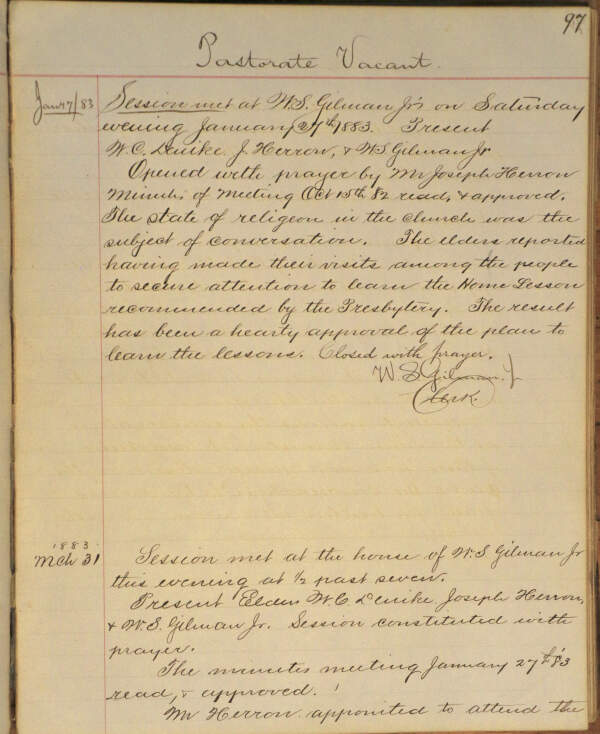 97
Pastorate Vacant.
Jan 27/83
Session met at W.S. Gilman Jr's on Saturday
evening January 27th 1883. Present
W.C. Denike J. Herron, & W.S. Gilman Jr
Opened with prayer by Mr Joseph Herron
Minutes of Meeting Oct 15th 82 read, & approved.
The state of religeon in the church was the
subject of conversation. The elders reported
having made their visits among the people
to secure attention to learn the Home Lesson
recommended by the Presbytery. The result
has been a hearty approval of the plan to
learn the lessons. Closed with prayer.
W.S. Gilman Jr
Clerk.
1883
Mch 31
Session met at the house of W.S. Gilman Jr
this evening at 1/2 past seven.
Present Elders W.C. Denike, Joseph Herron,
& W.S. Gilman Jr. Session constituted with
prayer.
The minutes meeting January 27th '83
read, & approved.
Mr Herron appointed to attend the